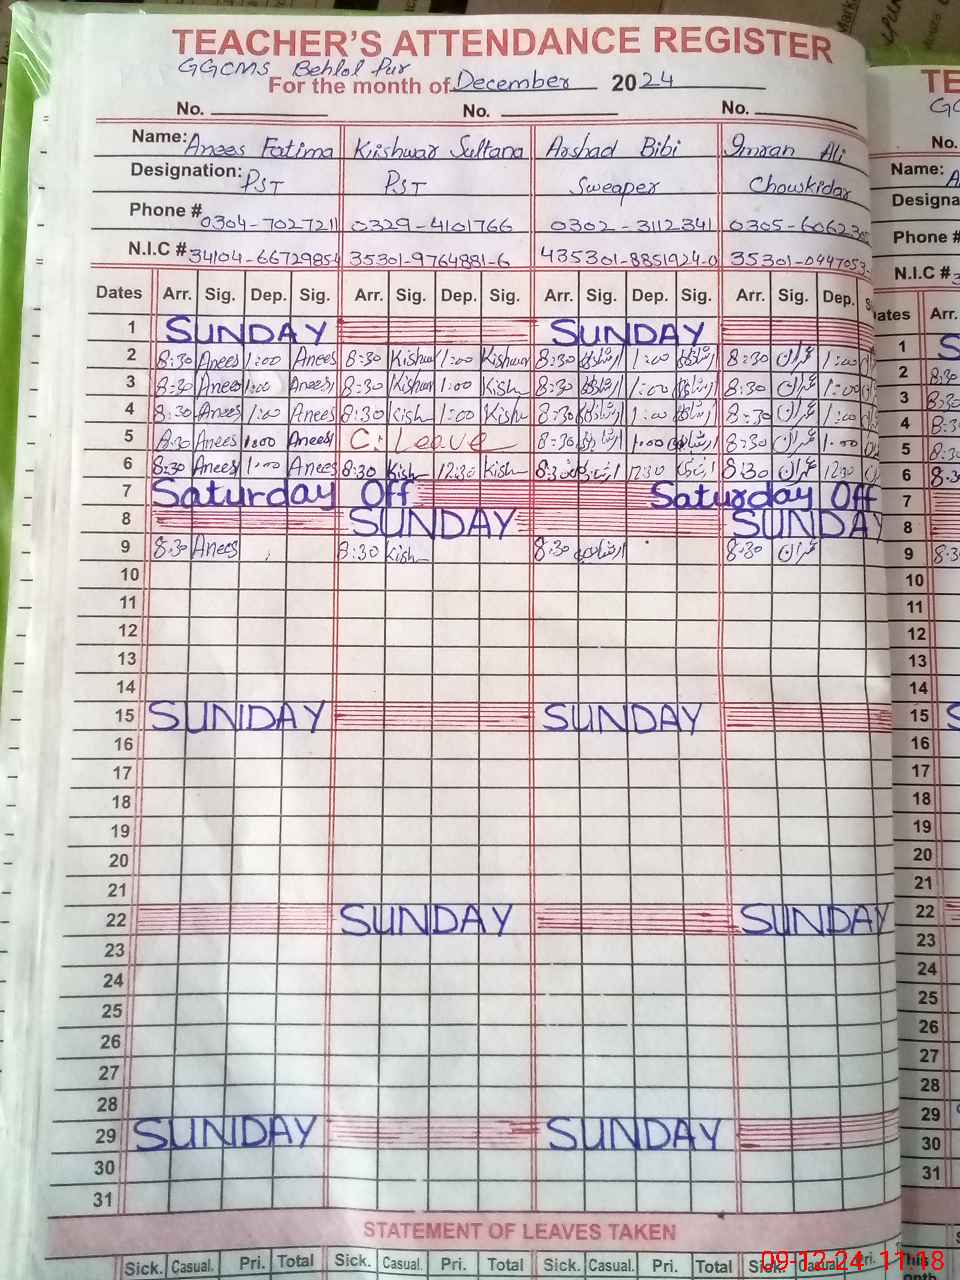 TEACHER'S ATTENDANCE REGISTER
GGCMS Behlol Pur
For the month of December 2024
No. No. No.
Name: Anees Fatima Kishwar Sultana Arshad Bibi Imran Ali
Designation: PST PST Sweaper Chowkidar
Phone # 0304-7027211 0329-4101766 0302-3112341 0305-6062
N.I.C # 34104-66729854 35301-9764881-6 435301-8851924-0 35301-0947053-
Dates Arr. Sig. Dep. Sig. Arr. Sig. Dep. Sig. Arr. Sig. Dep. Sig. Arr. Sig. Dep.
1 SUNDAY SUNDAY
2 8:30 Anees 1:00 Anees 8:30 Kishwar 1:00 Kishwar 8:30 1:00 8:30 عمران 1:00
3 8:30 Anees 1:00 Anees 8:30 Kishwar 1:00 Kish 8:30 1:00 8:30 عمران 1:00
4 8:30 Anees 1:00 Anees 8:30 Kish 1:00 Kish 8:30 1:00 8:30 عمران 1:00
5 8:30 Anees 1:00 Anees C. Leave 8:30 1:00 8:30 عمران 1:00
6 8:30 Anees 1:00 Anees 8:30 Kish 12:30 Kish 8:30 12:30 8:30 عمران 12:30
7 Saturday Off Saturday Off
8 SUNDAY SUNDAY
9 8:30 Anees 8:30 Kish 8:30 8:30 عمران
10
11
12
13
14
15 SUNDAY SUNDAY
16
17
18
19
20
21
22 SUNDAY SUNDAY
23
24
25
26
27
28
29 SUNDAY SUNDAY
30
31
STATEMENT OF LEAVES TAKEN
Sick. Casual. Pri. Total Sick. Casual. Pri. Total Sick. Casual. Pri. Total Sick. Casual. Pri.
TE
No.
Name:
Phone #
N.I.C #
Arr.
1
2 8:30
3 8:30
4 8:30
5 8:30
6 8:30
7
8
9 8:30
10
11
12
13
14
15
16
17
18
19
20
21
22
23
24
25
26
27
28
29
30
31
09-12-24 11:18